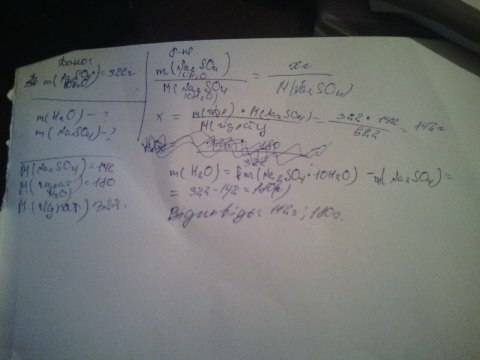 Дано:
m(Na₂SO₄·10H₂O) = 322г
m(H₂O) - ?
m(Na₂SO₄) - ?
M(Na₂SO₄) = 142
M(H₂O) = 180
M(гідрат) 322
m(Na₂SO₄·10H₂O) / M(Na₂SO₄·10H₂O) = xг / M(Na₂SO₄)
x = m(гідр) • M(Na₂SO₄) / M(гідрату) = 322 • 142 / 322 = 142г
m(H₂O) = m(Na₂SO₄·10H₂O) - m(Na₂SO₄) =
= 322 - 142 = 180(г)
Відповідь: 142г; 180г.